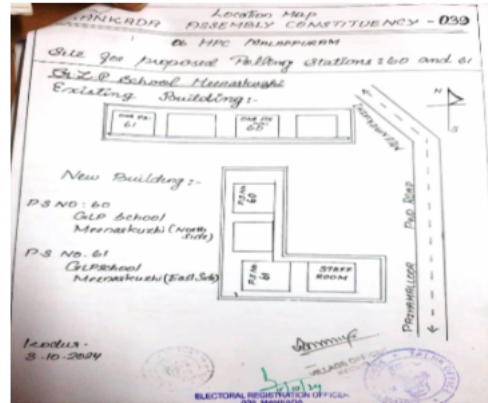 Location Map
MANKADA ASSEMBLY CONSTITUENCY - 039
06 HPC MALAPPURAM
Site for proposed Polling Stations: 60 and 61
G.L.P School Meenarkuzhi
Existing Building :-
61
60
N
S
New Building :-
PS NO: 60
GLP School
Meenarkuzhi (North Side)
P.S NO. 61
GLP School
Meenarkuzhi (East Side)
P.S No. 60
P.S No. 61
STAFF ROOM
PWD ROAD
3-10-2024
VILLAGE OFFICER
ELECTORAL REGISTRATION OFFICER
039 MANKADA